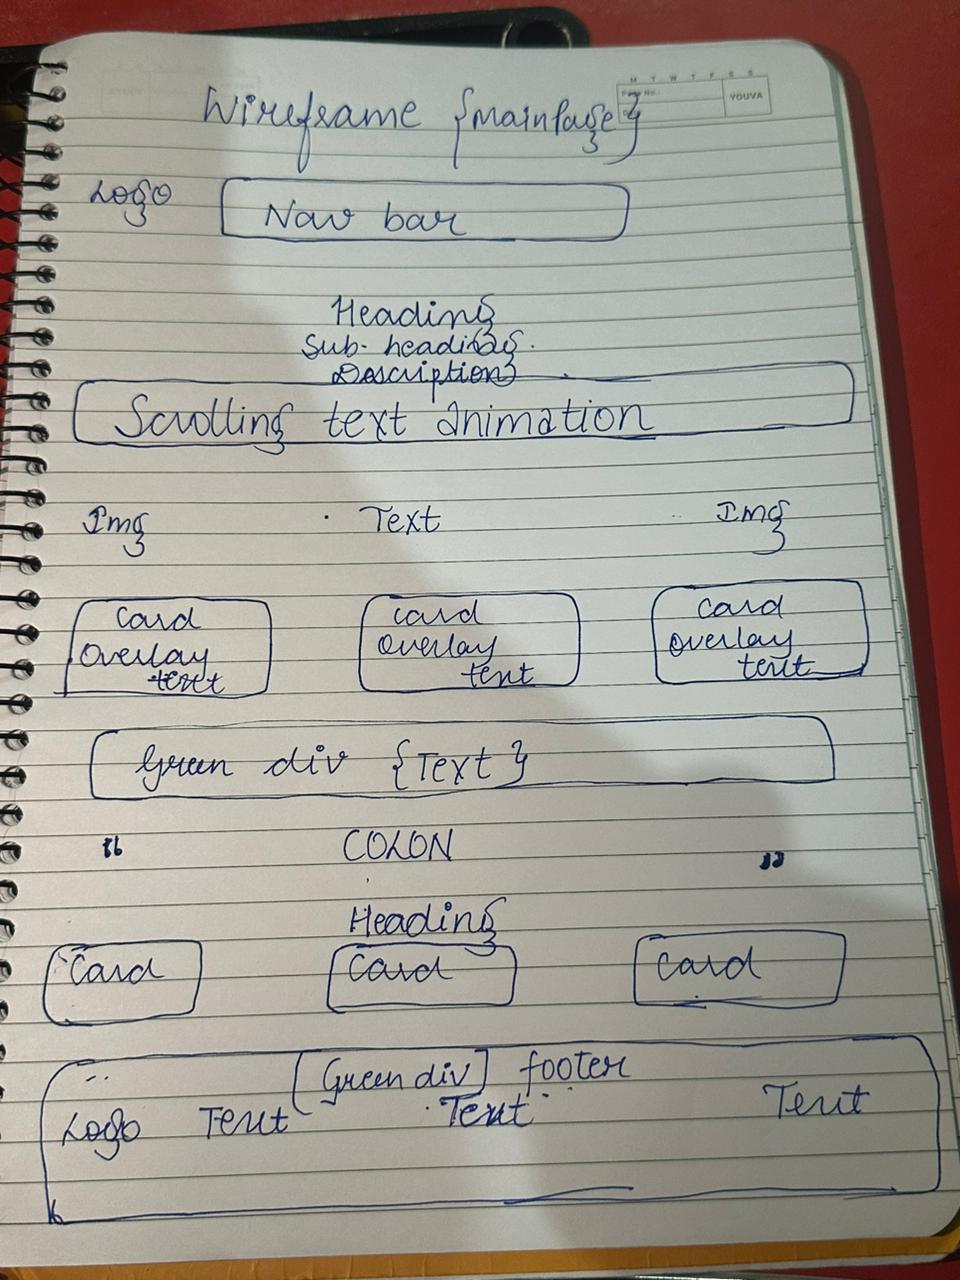 M T W T F S S
Page No.:
YOUVA
Wireframe {Mainpage}
Logo Nav bar
Heading
Sub-heading.
Description
Scrolling text animation
Img Text Img
card card card
overlay overlay overlay
text text text
Green div {Text}
“ COLON ”
Heading
Card Card Card
[Green div] footer
Logo Text Text Text